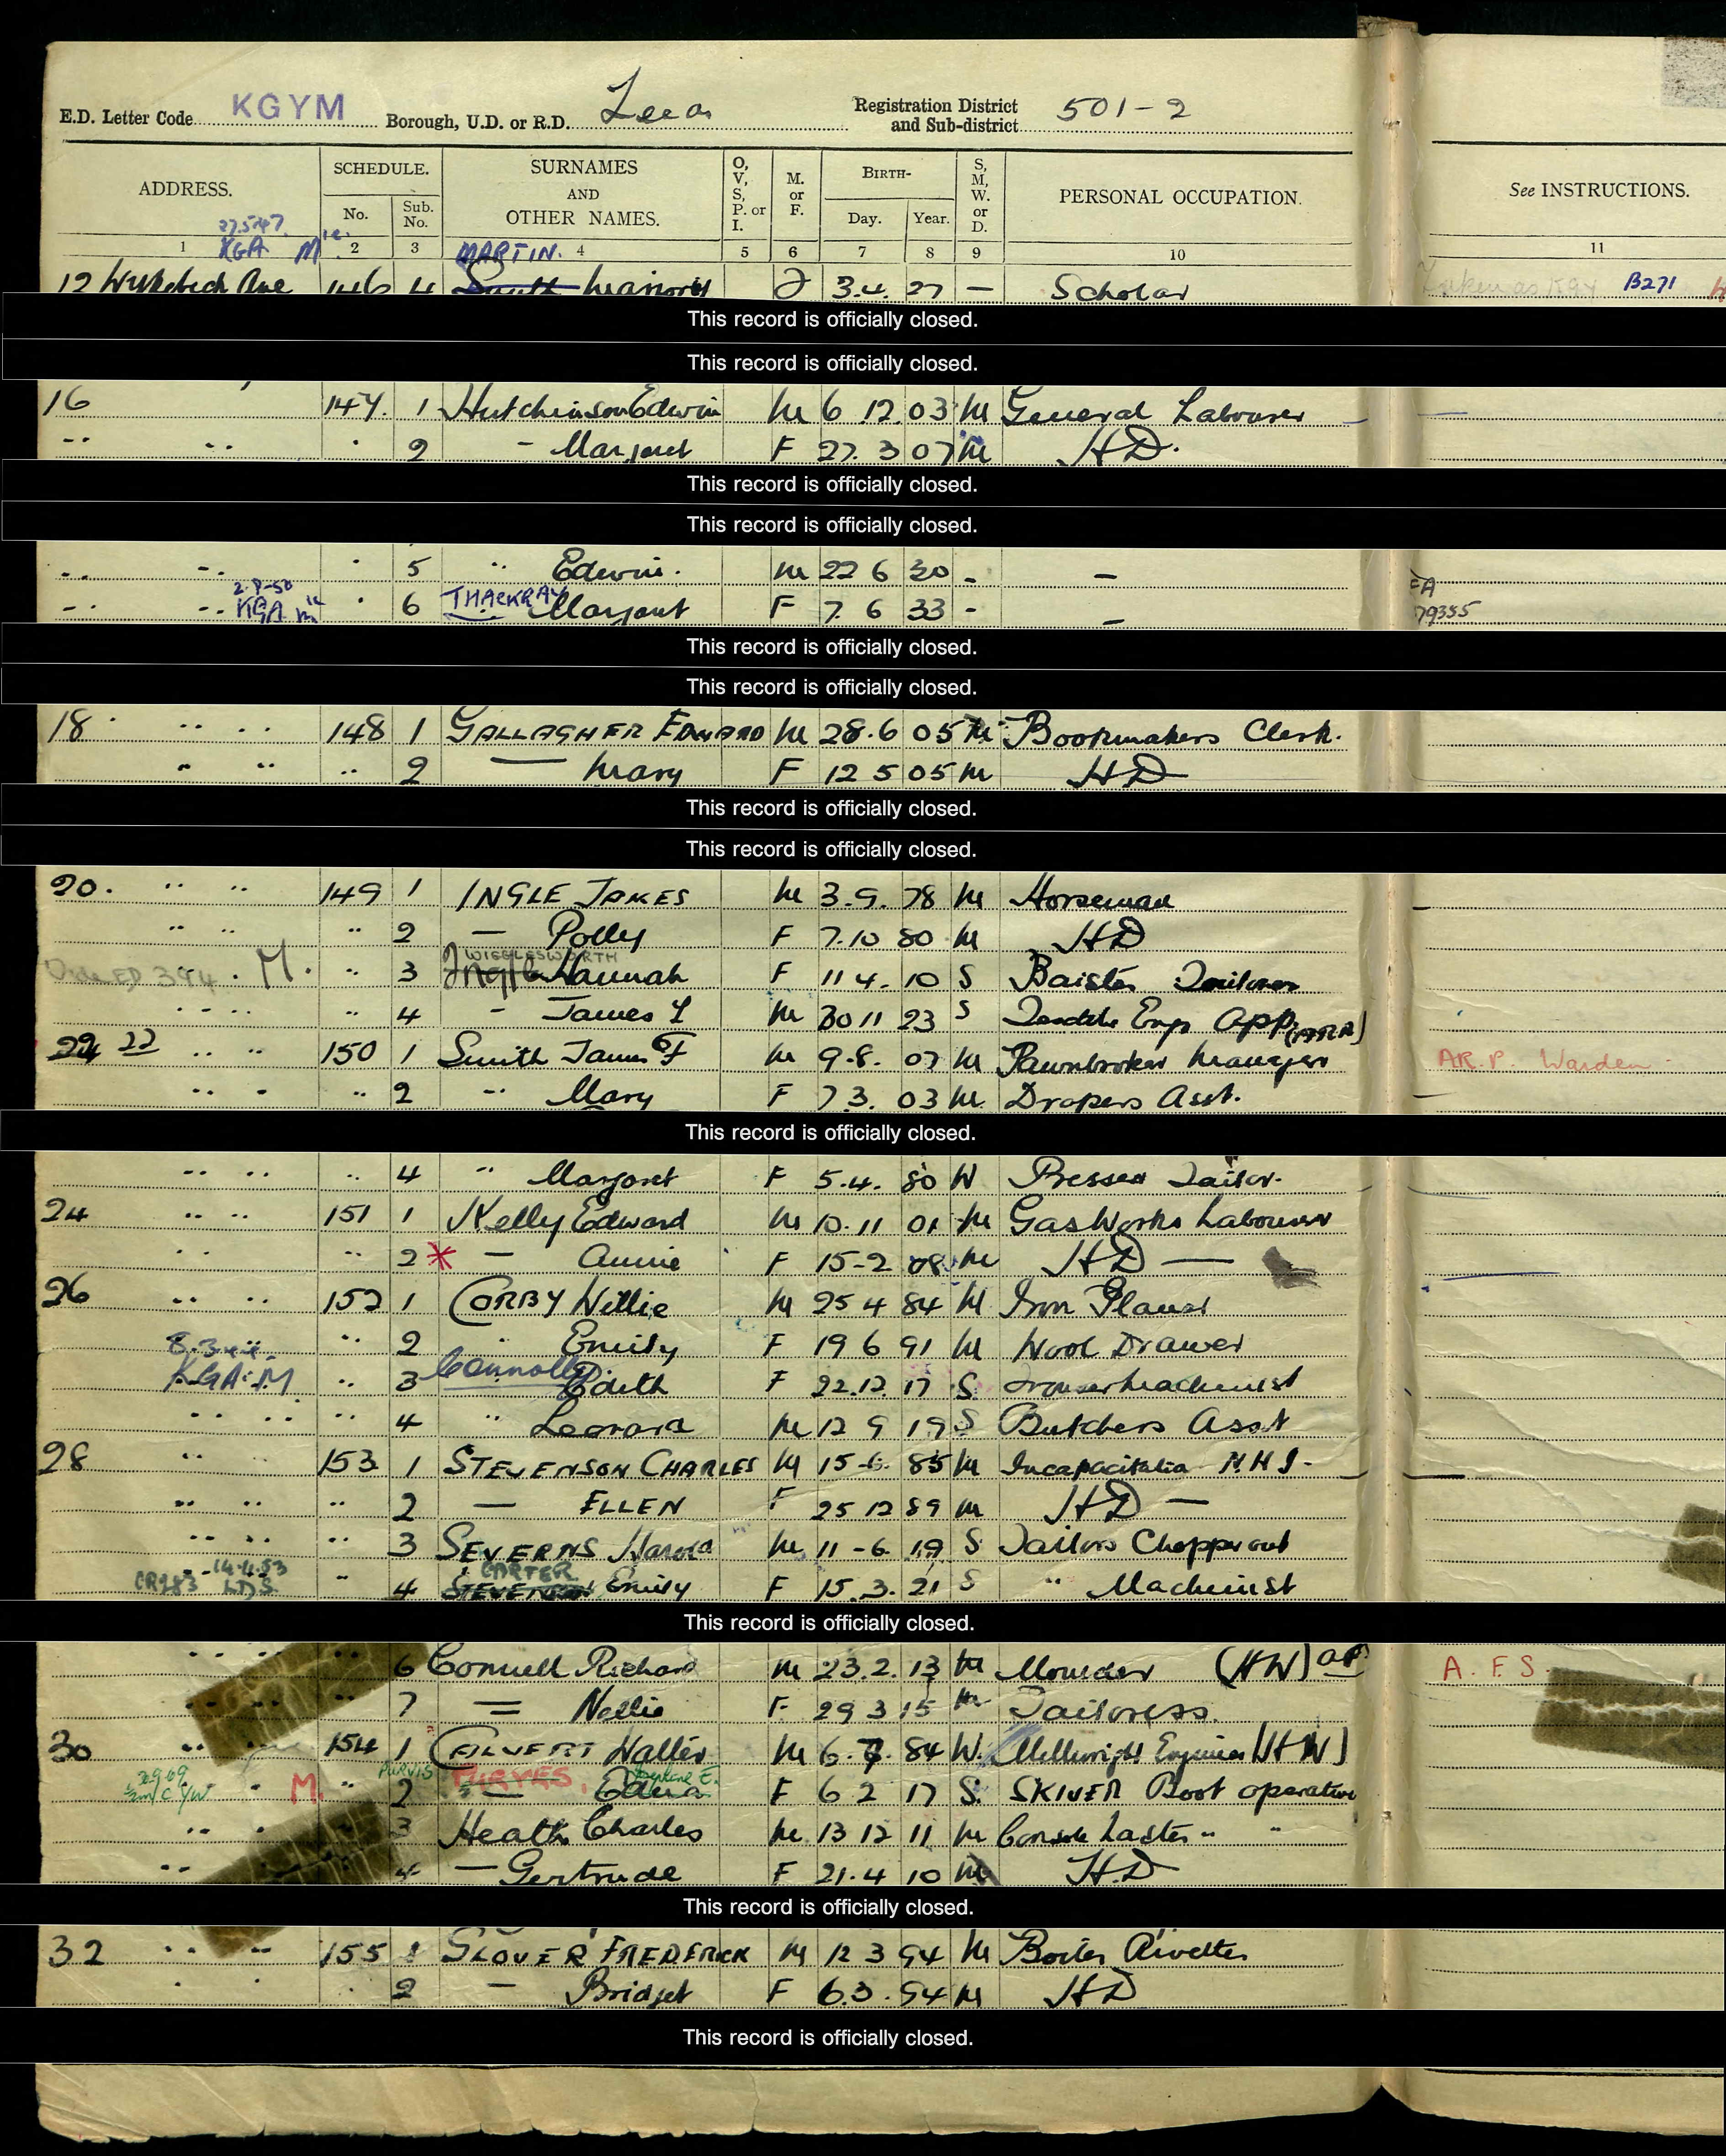 E.D. Letter Code KGYM Borough, U.D. or R.D. Leeds Registration District and Sub-district 501-2
ADDRESS. SCHEDULE. No. Sub. No. SURNAMES AND OTHER NAMES. O, V, S, P. or I. M. or F. BIRTH- Day. Year. S, M, W. or D. PERSONAL OCCUPATION. See INSTRUCTIONS.
27.5.47
1 KGA M 2 3 MARTIN. 4 5 6 7 8 9 10 11
12 Ave 146 4 Smith 3.4. 27 — Scholar B271
This record is officially closed.
This record is officially closed.
16 147. 1 Hutchinson Edwin M 6 12 03 M General Labourer
2 - Margaret F 27. 3 07 M H D.
This record is officially closed.
This record is officially closed.
5 " Edwin. M 22 6 30 - —
2.8-50 KGA 6 THACKRAY Margaret F 7. 6 33 - — 79355
This record is officially closed.
This record is officially closed.
18 " " 148 1 GALLAGHER EDWARD M 28.6 05 M Bookmakers Clerk.
" " " 2 — Mary F 12 5 05 M H D
This record is officially closed.
This record is officially closed.
20. " " 149 1 INGLE JAMES M 3.9. 78 M Horseman
" " " 2 — Polly F 7.10 80 M H D
M. " 3 Ingle WIGGLESWORTH Hannah F 11 4. 10 S Baister Tailoress
" 4 - James L M 30 11 23 S App
22 " " 150 1 Smith James F M 9.8. 07 M Pawnbroker Manager A.R.P. Warden
" " " 2 " Mary F 7 3. 03 M. Drapers Asst.
This record is officially closed.
" " " 4 " Margaret F 5.4. 80 W Presser Tailor.
24 " " 151 1 Kelly Edward M 10.11 01 M Gas Works Labourer
" " " 2 * — Annie F 15-2 08 M H D —
26 " " 152 1 CORBY Willie M 25 4 84 M Iron Planer
" 2 " Emily F 19 6 91 M Wool Drawer
KGA M " 3 Connolly Edith F 22.12. 17 S. Trouser Machinist
" " " 4 " Leonard M 12 9 19 S Butchers Asst
28 " 153 1 STEVENSON CHARLES M 15-6. 85 M Incapacitated N.H.I.
" " " 2 — ELLEN F 25 12 89 M H D —
" " " 3 SEVERNS Harold M 11-6. 19 S Tailors Chopper out
CR283 14.4.53 L.D.S. " 4 STEVENSON CARTER Emily F 15.3. 21 S " Machinist
This record is officially closed.
" " " 6 Connell Richard M 23.2. 13 M Moulder (HW) A.F.S.
" " 7 = Nellie F 29 3 15 M Tailoress.
30 " " 154 1 CALVERT Walter M 6.7. 84 W. Millwright Engineer (HW)
M. " 2 PURVIS PURVES. Edna F 6 2 17 S. SKIVER Boot operative
" " 3 Heath Charles M. 13 12 11 M Laster " "
" " 4 — Gertrude F 21.4 10 M H.D
This record is officially closed.
32 " " 155 1 GLOVER FREDERICK M 12 3 94 M Boiler Rivetter
2 — Bridget F 6.3. 94 M H D
This record is officially closed.